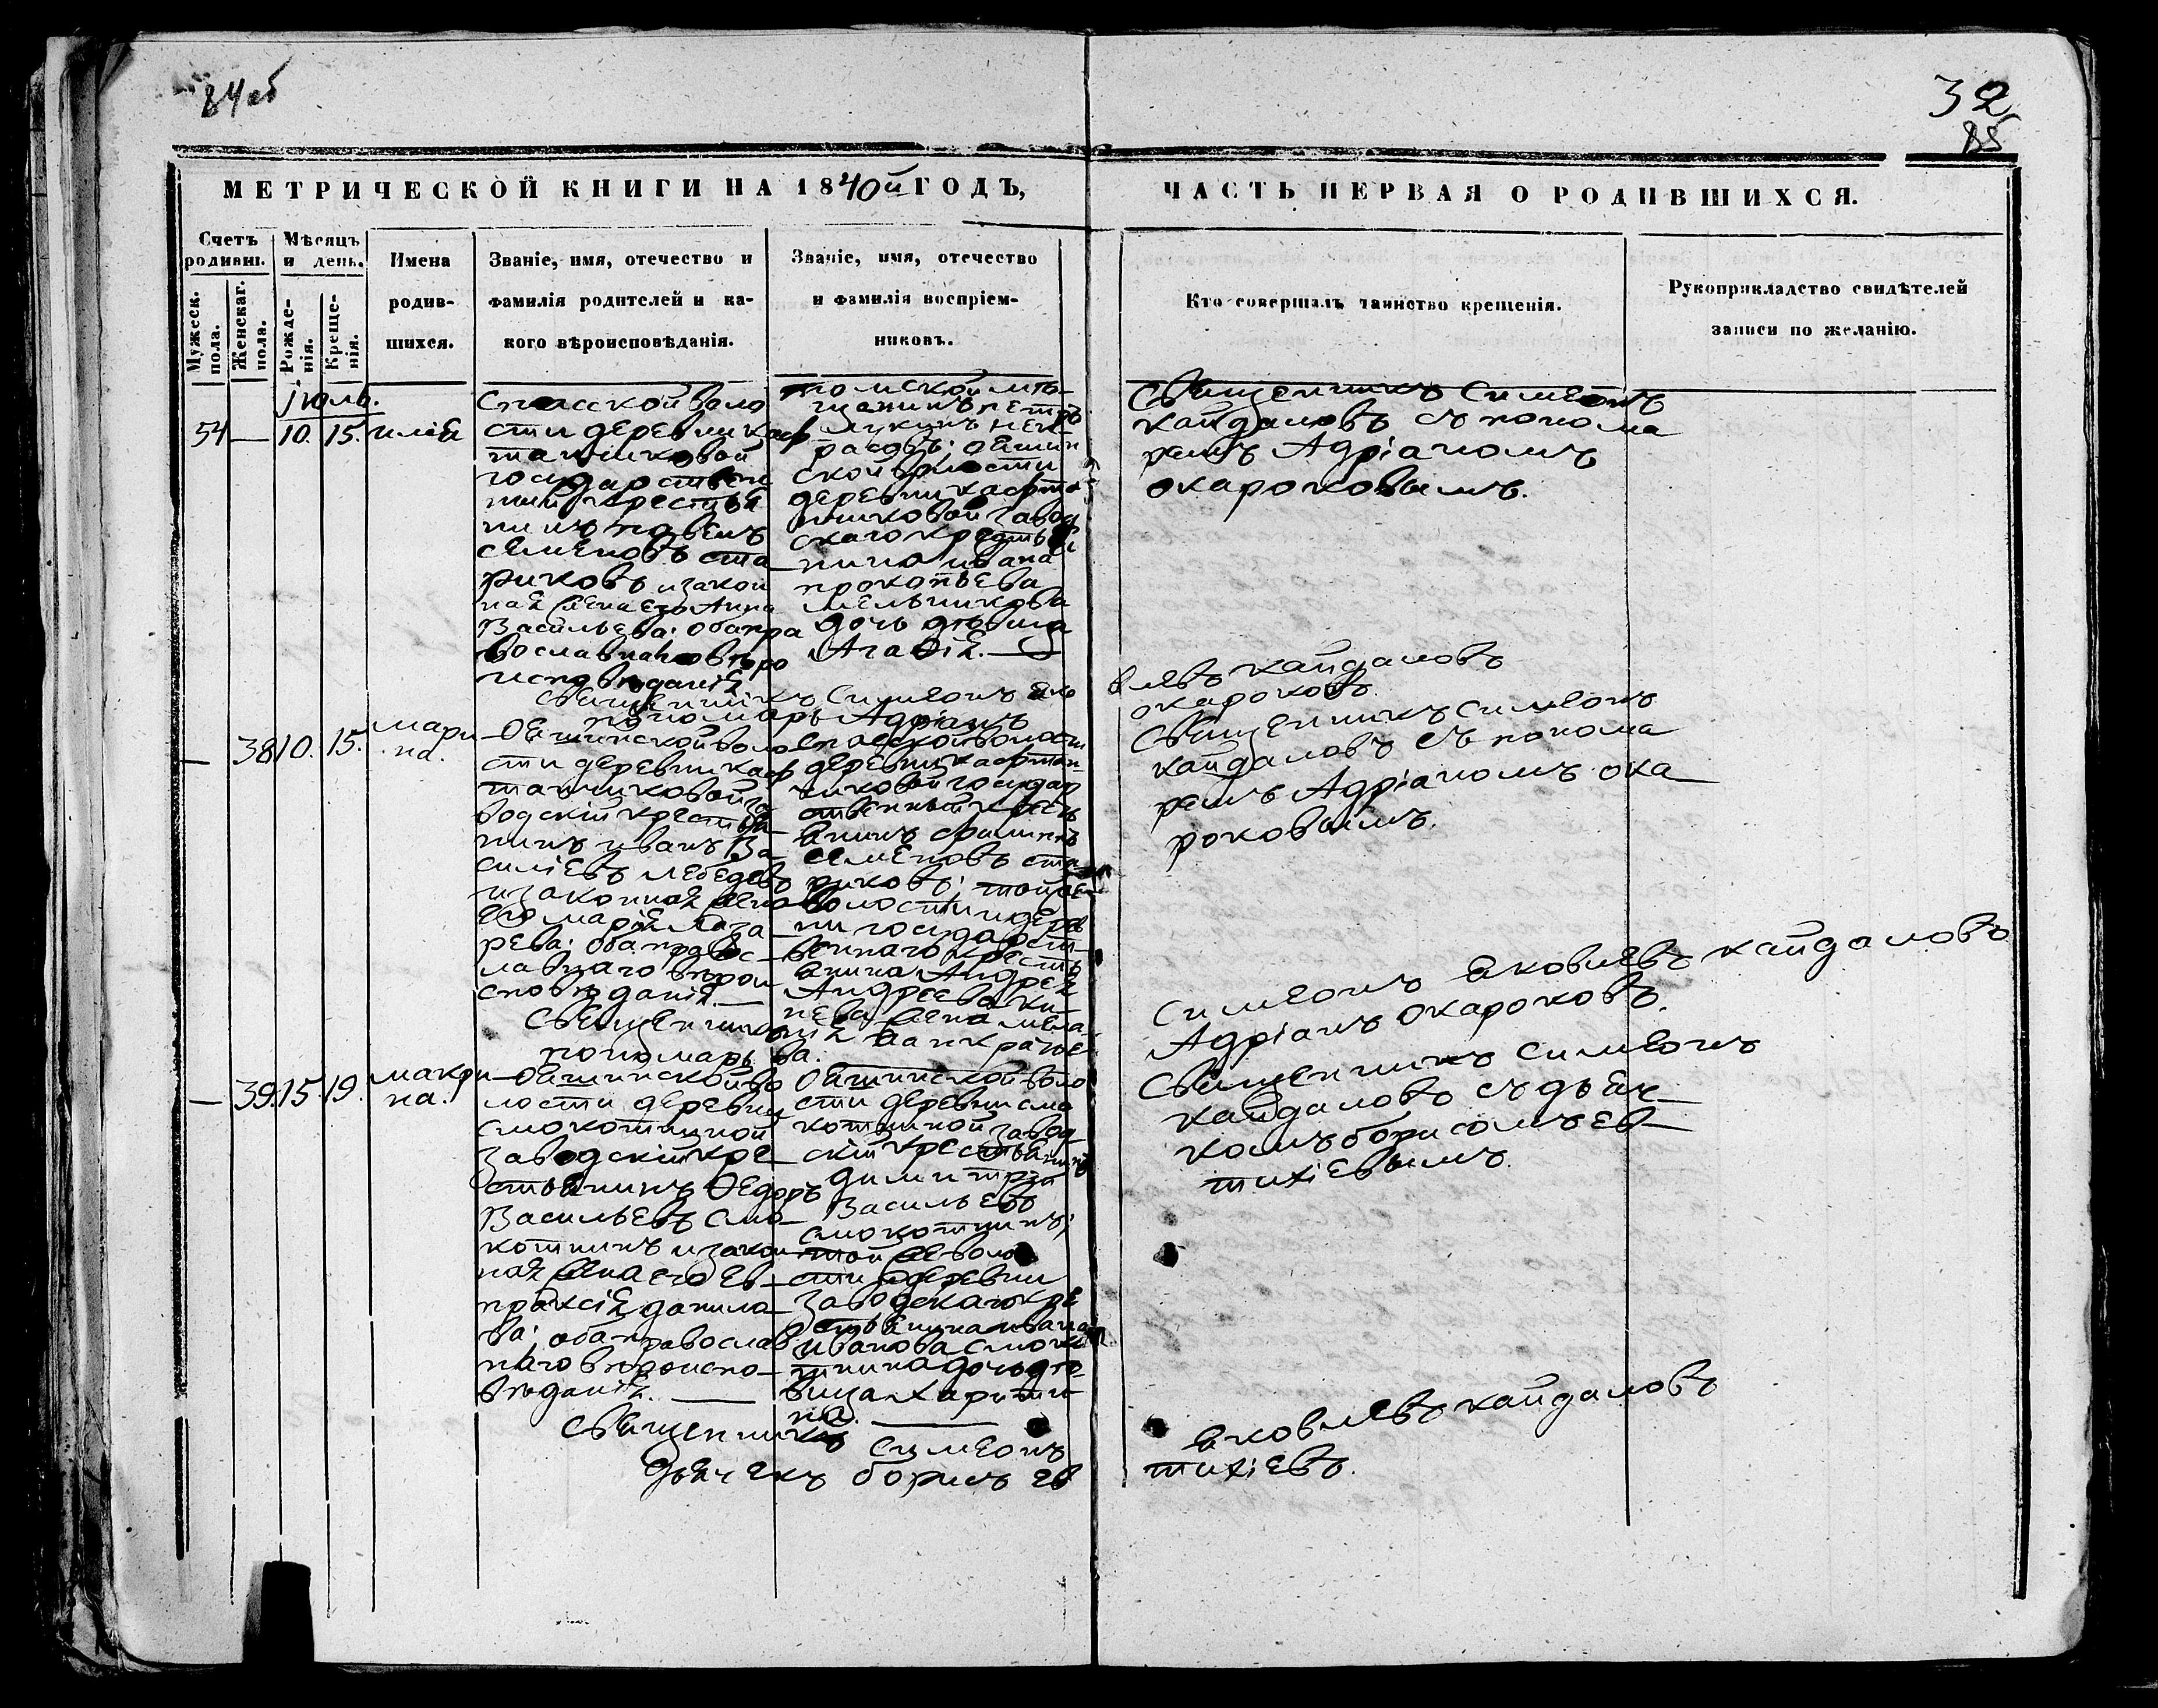 84об
32
85
МЕТРИЧЕСКОЙ КНИГИ НА 1840й ГОДЪ,
ЧАСТЬ ПЕРВАЯ О РОДИВШИХСЯ.
Счетъ родивш.
Мужеск. пола.
Женскаг. пола.
Мѣсяцъ и день.
Рожде-
нія.
Креще-
нія.
Имена
родив-
шихся.
Званіе, имя, отечество и
фамилія родителей и ка-
кого вѣроисповѣданія.
Званіе, имя, отечество
и фамилія воспріем-
никовъ.
Кто совершалъ таинство крещенія.
Рукоприкладство свидѣтелей
записи по желанію.
Iюль.
54 — 10. 15. илiя
Спасской воло
сти деревни каф
танчиковой
государствен
ный крестья
нинъ павелъ
семеновъ ста
риковъ и закон
ная жена его Анна
Васильева; оба пра
вославнаго вѣро
исповѣданiя
томской мѣ
щанинъ петръ
лукинъ
расовъ; Ояшин
ской волости
деревни кафта
нчиковой завод
скаго крестья
нина ивана
прокопьева
мельникова
дочь дѣвица
Агафiя.
Священникъ Симеонъ
Кайдаловъ съ понома
ремъ Адрiаномъ
окароковымъ.
Священникъ Симеонъ яко
влевъ кайдаловъ
пономарь Адрiанъ
окароковъ.
— 38 10. 15. мари
на.
Ояшинской воло
сти деревни каф
танчиковой за
водскiй крестья
нинъ иванъ Ва
силiевъ лебедевъ
и законная жена
его марiя Лаза
рева; оба правос
лавнаго вѣрои
сповѣданiя.
Спасской волости
деревни кафтан
чиковой государ
ственный кресть
янинъ филиппъ
семеновъ ста
риковъ; той же
волости и дерев
ни государст
веннаго кресть
янина Андрея
Андреева
жена мела
нiя панкратье
ва.
Священникъ Симеонъ
кайдаловъ съ понома
ремъ Адрiаномъ ока
роковымъ.
Священникъ
Симеонъ яковлевъ кайдаловъ
пономарь
Адрiанъ окароковъ.
— 39. 15. 19. макри
на.
Ояшинской во
лости деревни
смокотиной
заводскiй кре
стьянинъ Ѳедоръ
Васильевъ смо
котинъ и закон
ная жена его Ев
праксiя данила
ва; оба православ
наго вѣроиспо
вѣданiя.
Ояшинской воло
сти деревни смо
котиной завод
скiй крестьянинъ
димитрiй
Васильевъ
смокотинъ;
той же воло
сти и деревни
заводскаго кре
стьянина ивана
иванова смоко
тина дочь дѣ
вица харити
на.
Священникъ Симеонъ
кайдаловъ съ дьяч
комъ борисомъ ев
тихiевымъ.
Священникъ Симеонъ
яковлевъ кайдаловъ
дьячекъ борисъ ев
тихiевъ.